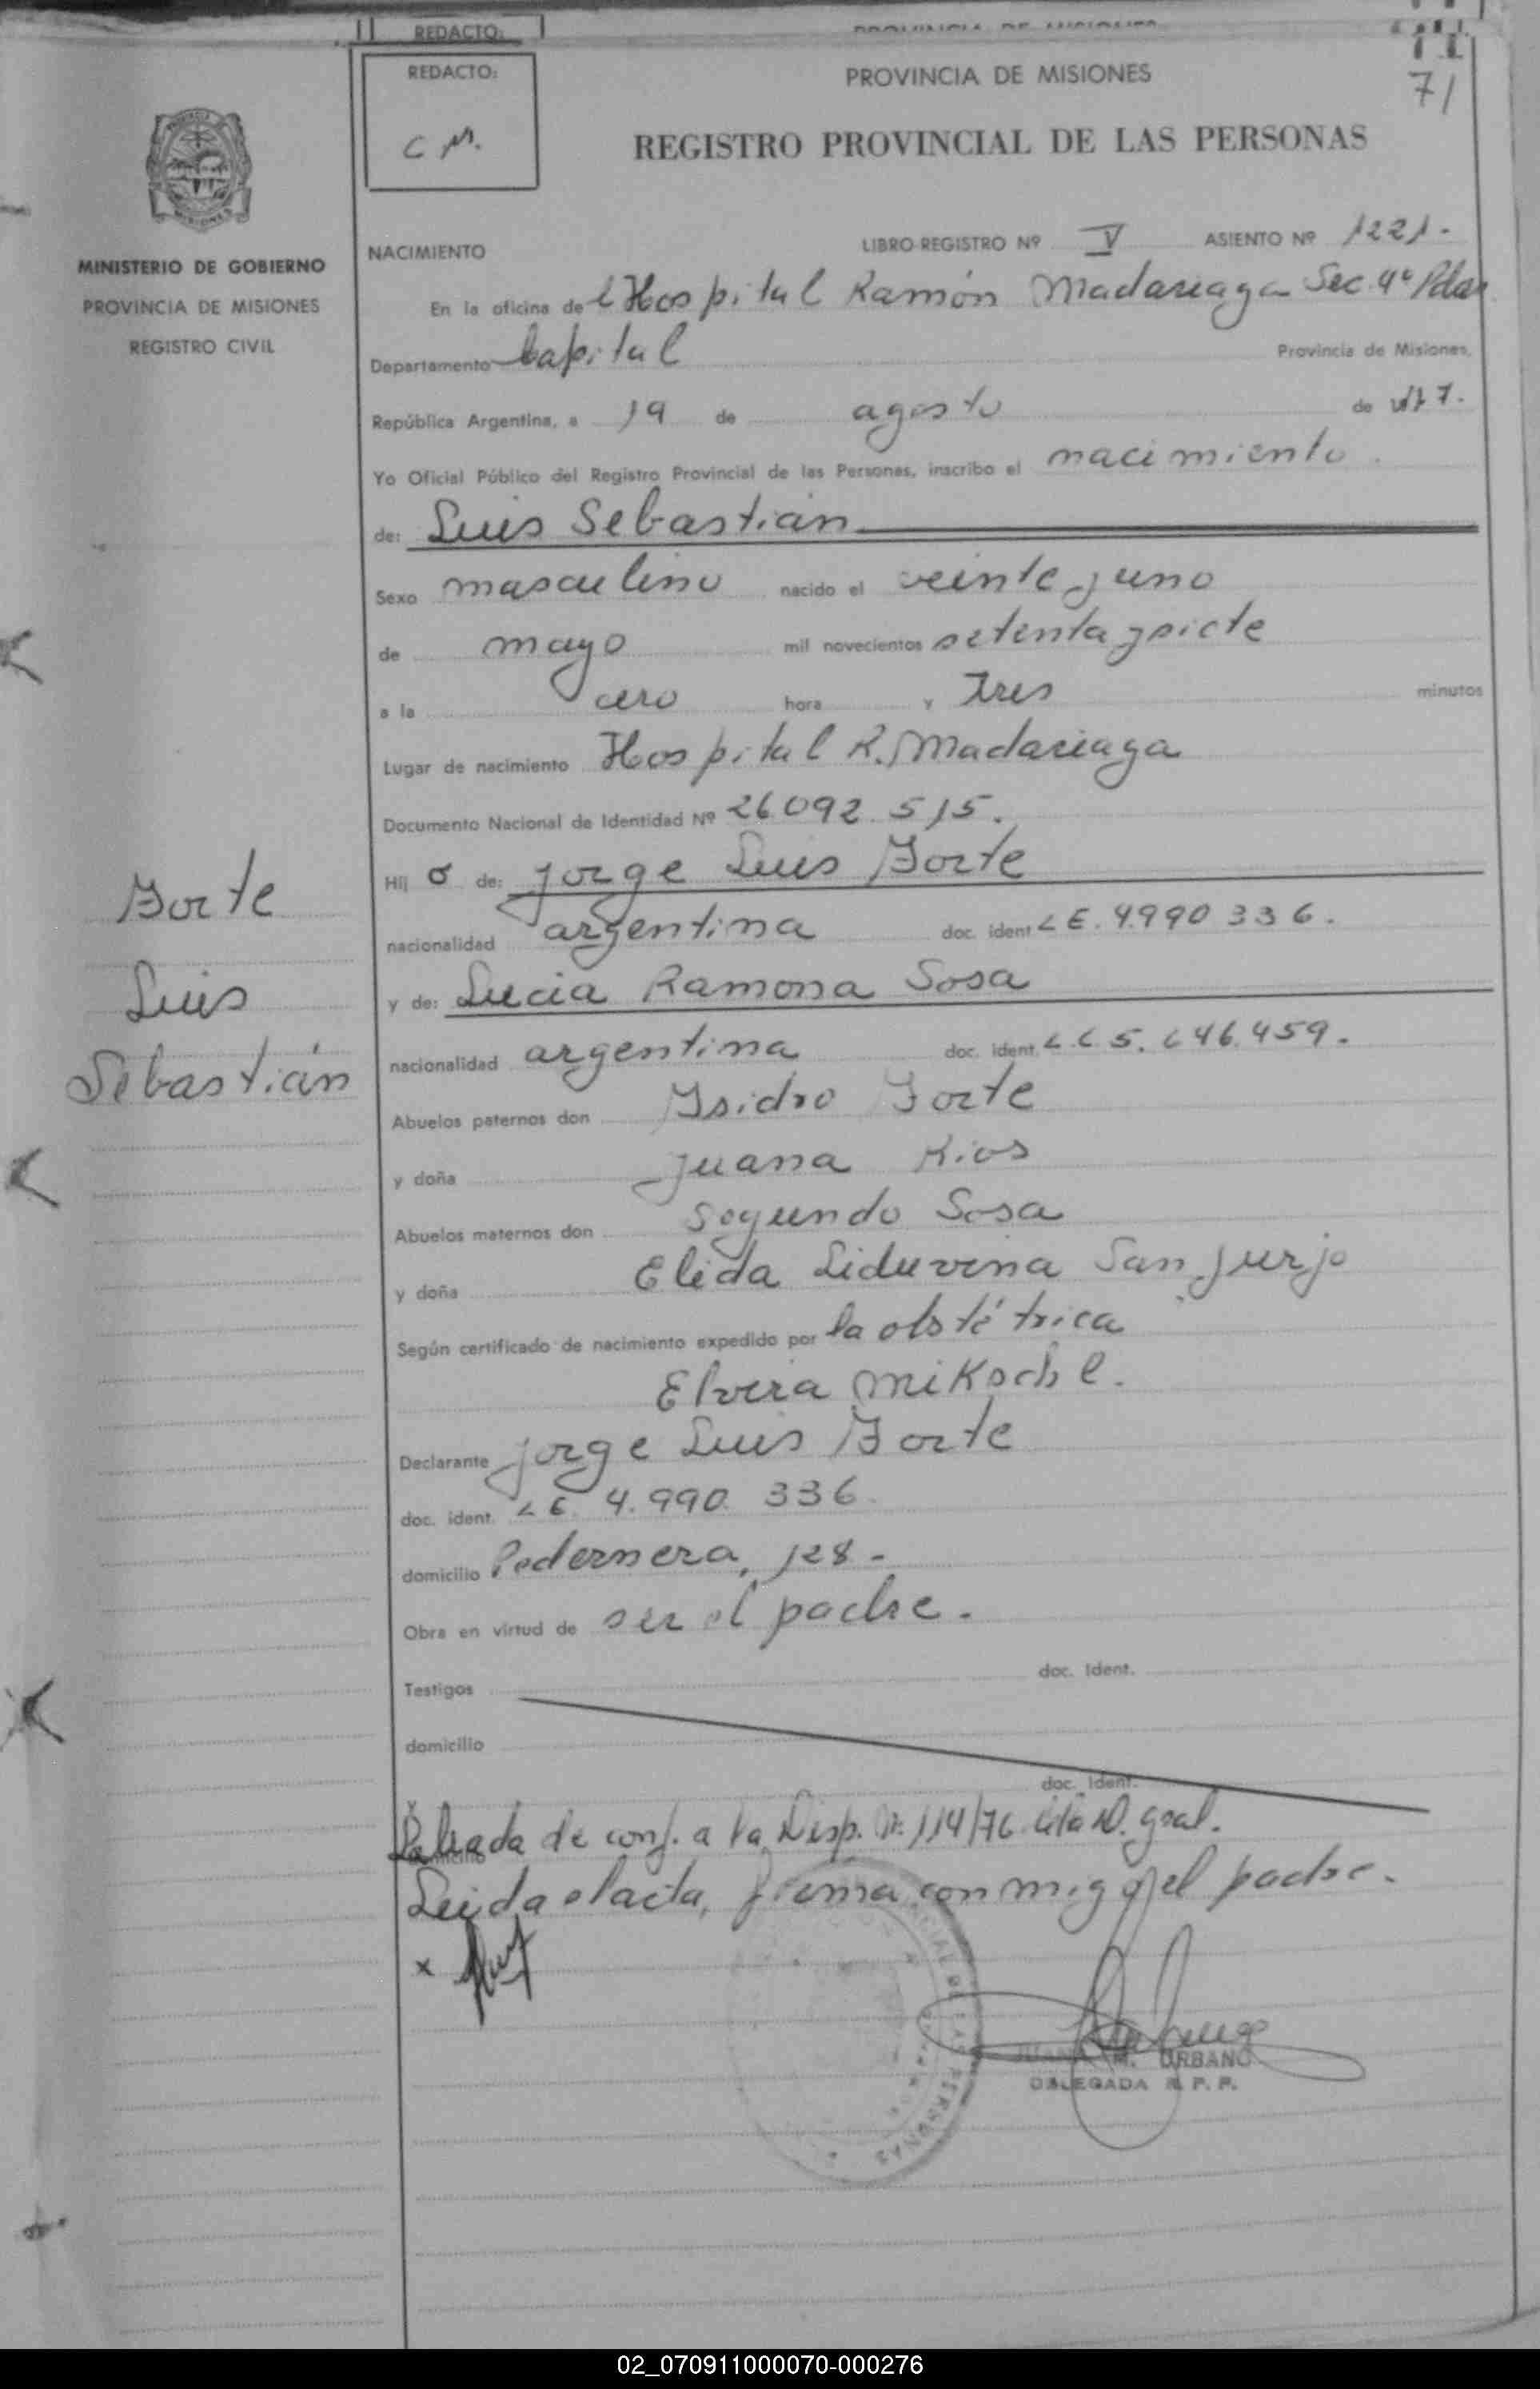 REDACTO:
PROVINCIA DE MISIONES
REDACTO:
C M.
PROVINCIA DE MISIONES
71
REGISTRO PROVINCIAL DE LAS PERSONAS
MINISTERIO DE GOBIERNO
PROVINCIA DE MISIONES
REGISTRO CIVIL
NACIMIENTO
LIBRO-REGISTRO Nº V ASIENTO Nº 1221.-
En la oficina del Hospital Ramón Madariaga Sec. 4º Pdas
Departamento Capital Provincia de Misiones,
República Argentina, a 19 de agosto de
Yo Oficial Público del Registro Provincial de las Personas, inscribo el nacimiento.
de: Luis Sebastián
Sexo masculino nacido el veinte y uno
de mayo mil novecientos setenta y siete
a la cero hora y tres minutos
Lugar de nacimiento Hospital R. Madariaga
Documento Nacional de Identidad Nº 26.092.515.
Hij o de: Jorge Luis Forte
nacionalidad argentina doc. ident. L E. 4.990.336.
y de: Lucia Ramona Sosa
nacionalidad argentina doc. ident. L C 5. 646.459.
Abuelos paternos don Ysidro Forte
y doña Juana Rios
Abuelos maternos don Segundo Sosa
y doña Elida Liduvina Sanjurjo
Según certificado de nacimiento expedido por la obstétrica
Elvira Mikoche.
Declarante Jorge Luis Forte
doc. ident. L E. 4.990.336.
domicilio Pedernera, 128.-
Obra en virtud de ser el padre.
Testigos doc. Ident.
domicilio
doc. Ident.
de conf. a la Disp. Nº 114/76 de la D. gral.
Leida el acta, firma conmigo el padre.
x
JUANA M. URBANO
DELEGADA R. P. P.
Forte
Luis
Sebastián
02_070911000070-000276